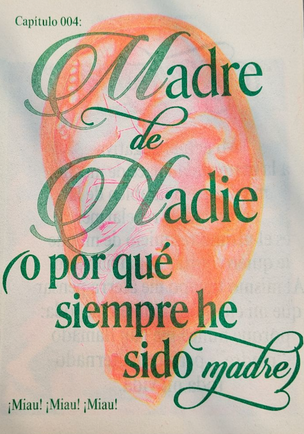 Capitulo 004:
Madre
de
Nadie
(o por qué
siempre he
sido madre)
¡Miau! ¡Miau! ¡Miau!